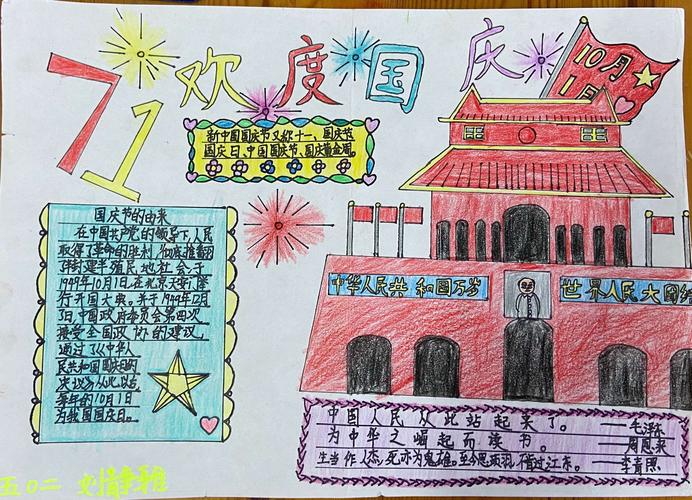 71
欢度国庆
10月
1日
新中国国庆节又称十一、国庆节
国庆日、中国国庆节、国庆黄金周。
国庆节的由来
在中国共产党的领导下,人民
取得了革命的胜利,彻底推翻
半封建半殖民地社会,于
1949年10月1日在北京天安门举
行开国大典。并于1949年12月
3日,中国政府委员会第四次
接受全国政协的建议,
通过了《中华人
民共和国国庆日的
决议》,从此以后,
每年的10月1日
为我国国庆日。
中华人民共和国万岁
世界人民大团结
中国人民从此站起来了。——毛泽东
为中华之崛起而读书。——周恩来
生当作人杰,死亦为鬼雄。至今思项羽,不肯过江东。——李清照
五0二